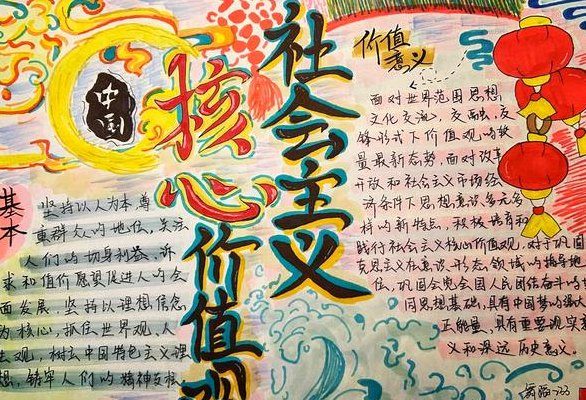 社会主义
核心价值观
中国
价值
意义
面对世界范围思想
文化交流、交融、交
锋形式下价值观的较
量最新态势，面对改革
开放和社会主义市场经
济条件下思想意识多元多
样的新特点，积极培育和
践行社会主义核心价值观，对于巩固
克思主义在意识形态领域的指导地
位、巩固全党全国人民团结奋斗的
同思想基础，具有中国梦的强
正能量，具有重要现实意
义和深远历史意义。
基
本
坚持以人为本尊
重群众的地位，关注
人们的切身利益，诉
求和值价愿望促进人的全
面发展，坚持以理想信念
为核心，抓住世界观、人
生观，树立中国特色主义理
想，铸牢人们的精神支柱